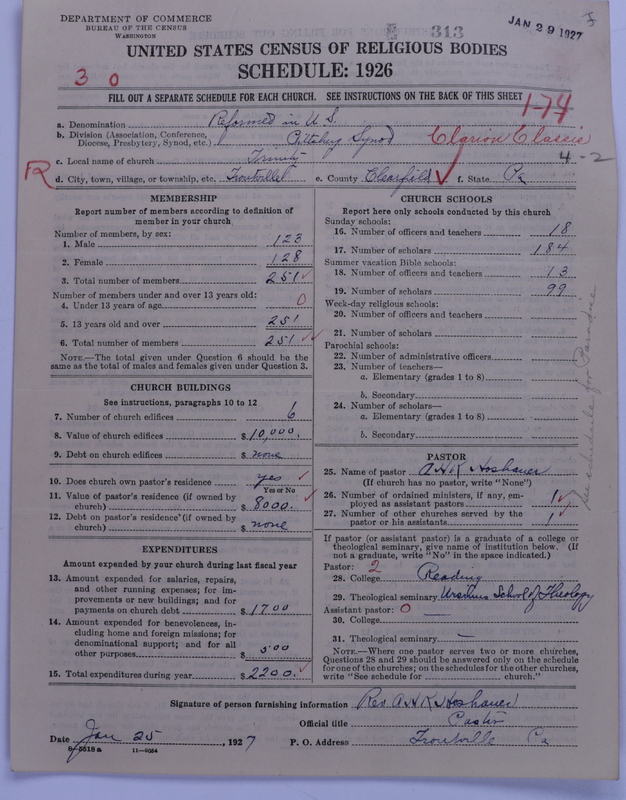 DEPARTMENT OF COMMERCE
BUREAU OF THE CENSUS
WASHINGTON
313
JAN 29 1927
UNITED STATES CENSUS OF RELIGIOUS BODIES
SCHEDULE: 1926
3 0
FILL OUT A SEPARATE SCHEDULE FOR EACH CHURCH. SEE INSTRUCTIONS ON THE BACK OF THIS SHEET
1-74
a. Denomination Reformed in U.S.
b. Division (Association, Conference, Diocese, Presbytery, Synod, etc.) Pittsburg Synod Clarion Classis
c. Local name of church Trinity 4-2
R
d. City, town, village, or township, etc. Troutville e. County Clearfield f. State Pa
MEMBERSHIP
Report number of members according to definition of
member in your church
Number of members, by sex:
1. Male 123
2. Female 128
3. Total number of members 251
Number of members under and over 13 years old:
4. Under 13 years of age 0
5. 13 years old and over 251
6. Total number of members 251
NOTE.—The total given under Question 6 should be the
same as the total of males and females given under Question 3.
CHURCH BUILDINGS
See instructions, paragraphs 10 to 12
7. Number of church edifices 6
8. Value of church edifices $10,000.
9. Debt on church edifices $none
10. Does church own pastor's residence yes
Yes or No
11. Value of pastor's residence (if owned by
church) $8000.
12. Debt on pastor's residence (if owned by
church) $none
EXPENDITURES
Amount expended by your church during last fiscal year
13. Amount expended for salaries, repairs,
and other running expenses; for im-
provements or new buildings; and for
payments on church debt $1700
14. Amount expended for benevolences, in-
cluding home and foreign missions; for
denominational support; and for all
other purposes $500
15. Total expenditures during year $2200.
CHURCH SCHOOLS
Report here only schools conducted by this church
Sunday schools:
16. Number of officers and teachers 18
17. Number of scholars 184
Summer vacation Bible schools:
18. Number of officers and teachers 13
19. Number of scholars 99
Week-day religious schools:
20. Number of officers and teachers
21. Number of scholars
Parochial schools:
22. Number of administrative officers
23. Number of teachers—
a. Elementary (grades 1 to 8)
b. Secondary
24. Number of scholars—
a. Elementary (grades 1 to 8)
b. Secondary
See schedule for Paradise
PASTOR
25. Name of pastor A H K Hoshauer
(If church has no pastor, write "None")
26. Number of ordained ministers, if any, em-
ployed as assistant pastors 1
27. Number of other churches served by the
pastor or his assistants 1
If pastor (or assistant pastor) is a graduate of a college or
theological seminary, give name of institution below. (If
not a graduate, write "No" in the space indicated.)
Pastor: 2
28. College Reading
29. Theological seminary Ursinus School of Theology
Assistant pastor: 0
30. College —
31. Theological seminary —
NOTE.—Where one pastor serves two or more churches,
Questions 28 and 29 should be answered only on the schedule
for one of the churches; on the schedules for the other churches,
write "See schedule for church."
Signature of person furnishing information Rev. A H K Hoshauer
Official title Pastor
Date Jan 25, 1927 P. O. Address Troutville Pa
8-5518a 11-9054